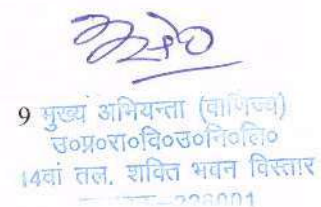 9 मुख्य अभियन्ता (वाणिज्य)
उ०प्र०रा०वि०उ०नि०लि०
14वां तल, शक्ति भवन विस्तार
226001